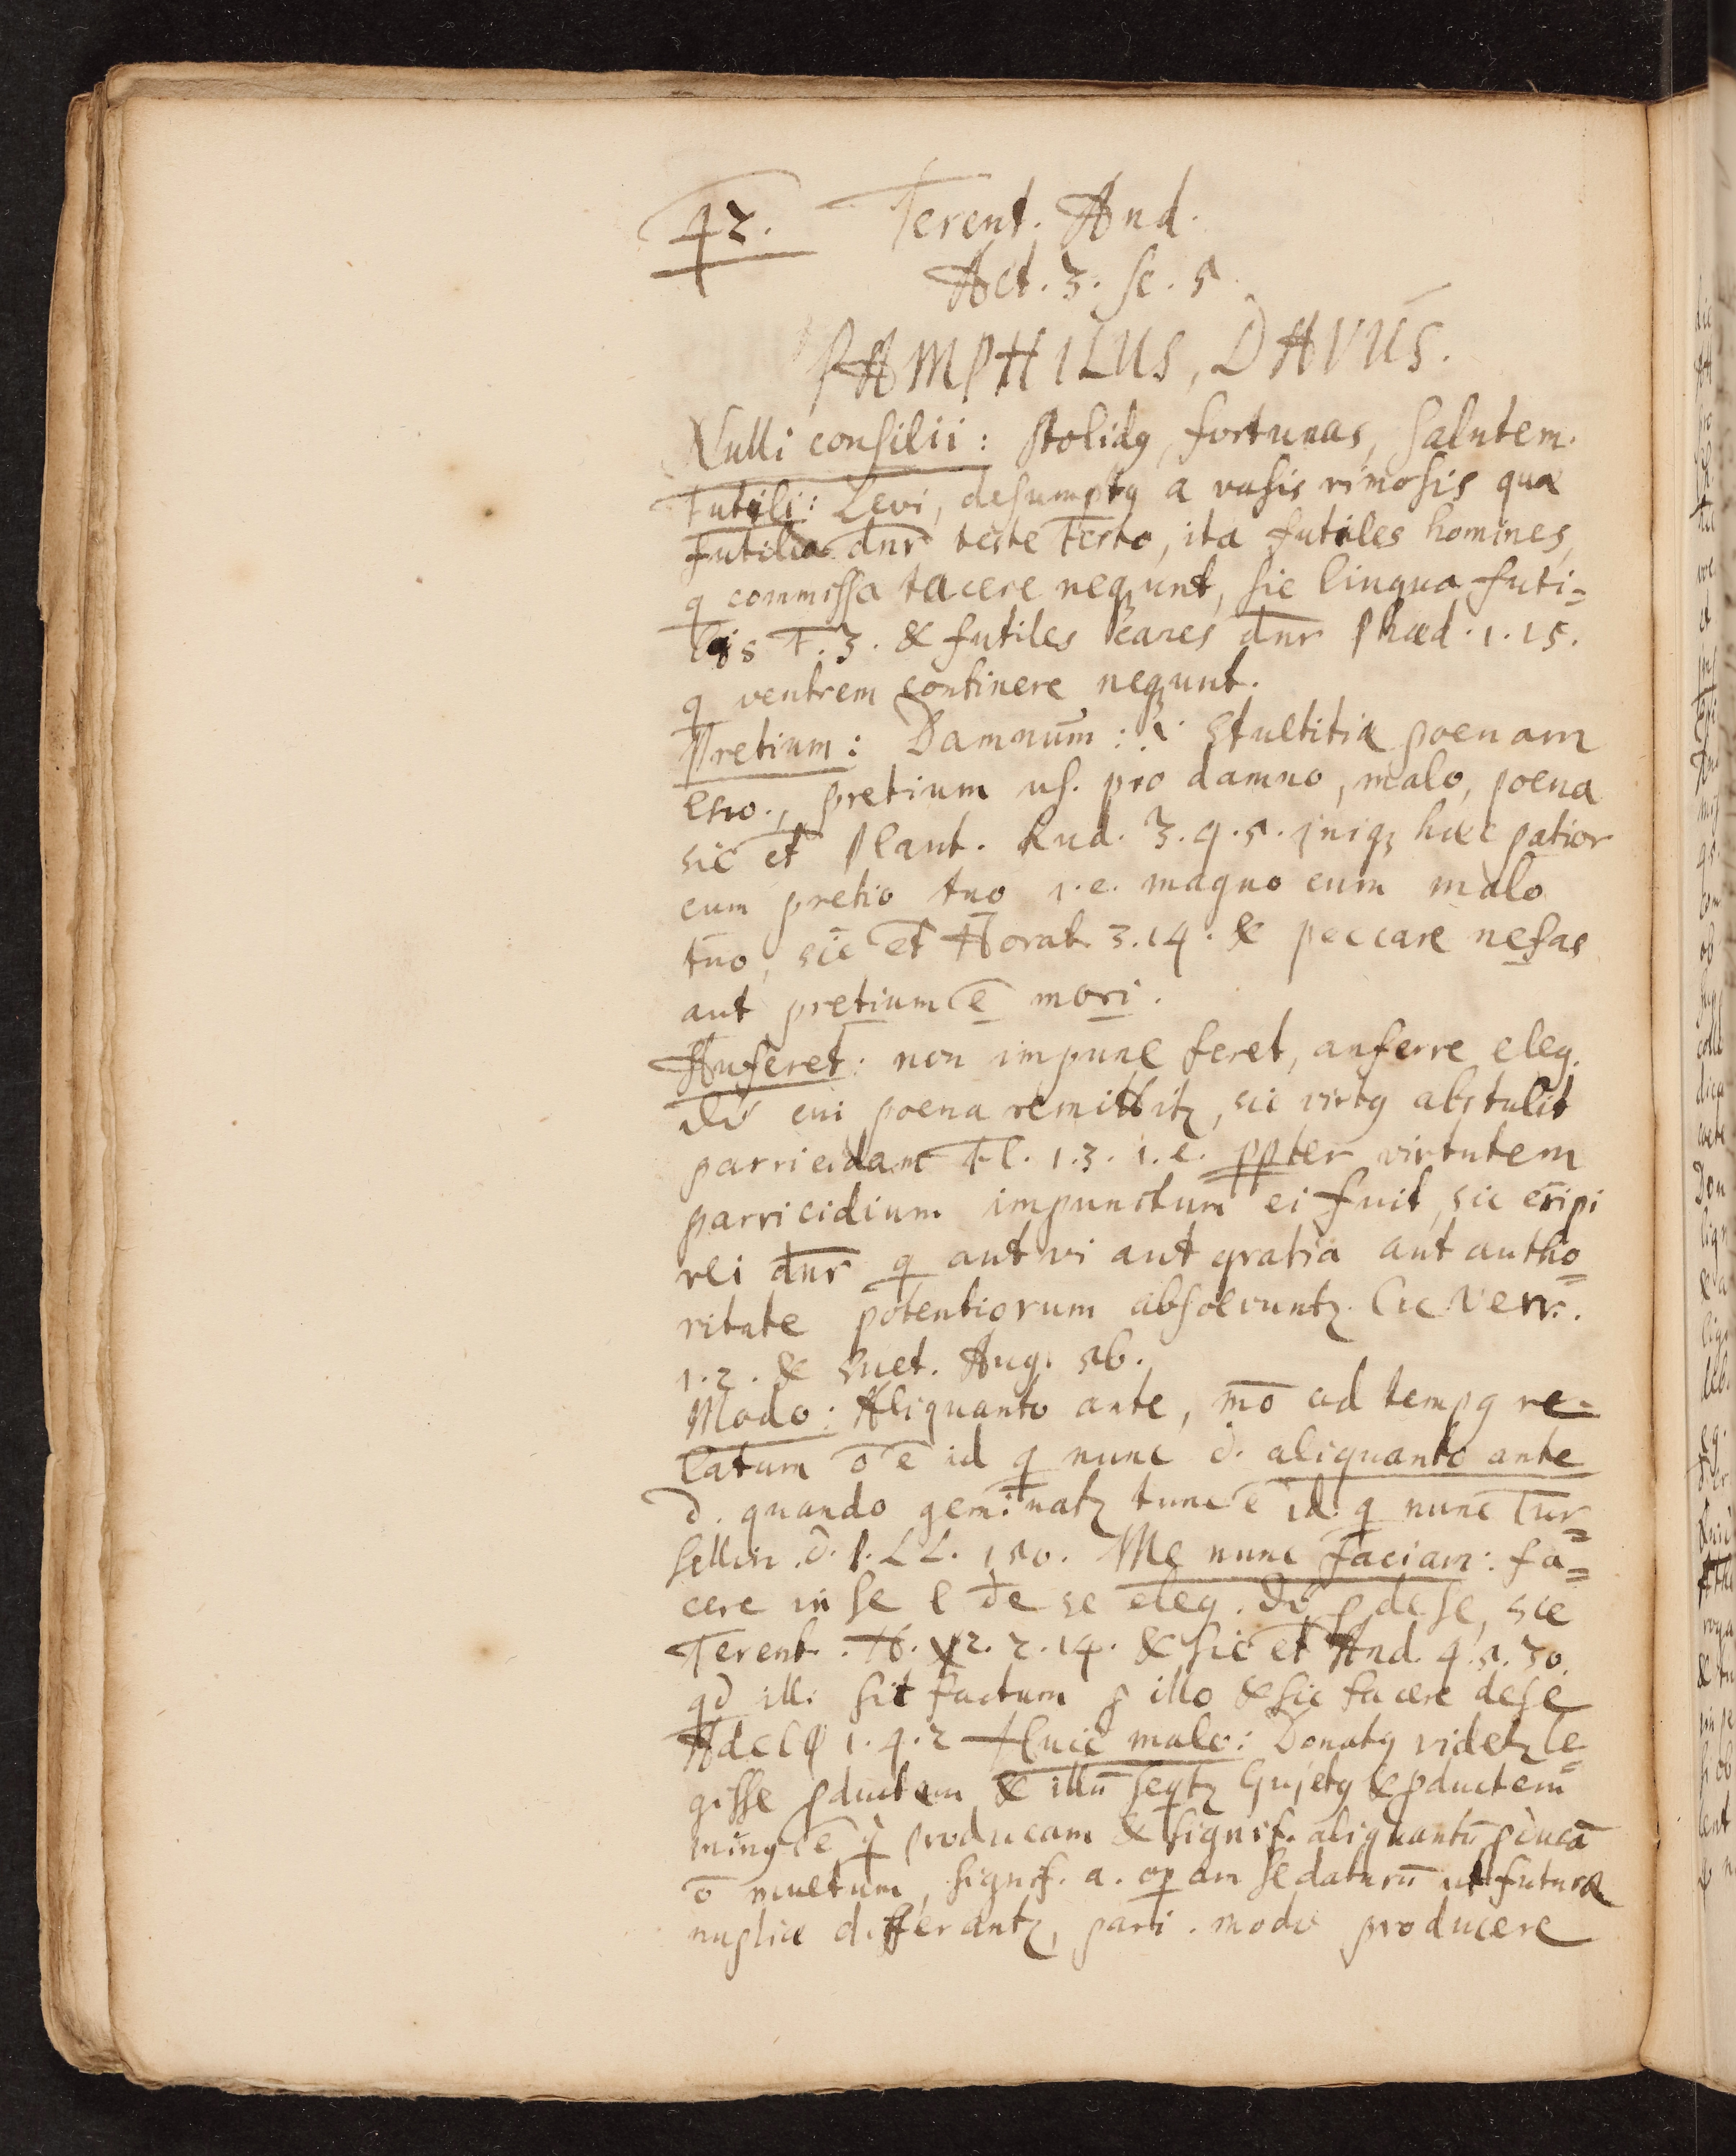 42. Terent. And.
Act. 3. sc. 5.
PAMPHILUS, DAVUS.
Nulli consilii: stolidꝯ, fortunas, salutem.
Futili: Levi, desumptꝯ a vasis rimosis quæ
futilia dnr̄ teste Festo, ita futiles homines,
q commissa tacere neqꝫunt, sic lingua futi=
lis F. 3. & futiles canes dnr̄ Phæd. 1. 15.
q ventrem continere neqꝫunt.
Pretium: Damnum: stultitiæ poenam
pretium us. pro damno, malo, poena
sic et Plaut. Rud. 3. 4. 5. iniqꝫ hæc patior
cum pretio tuo i.e. magno cum malo
tuo, sic et Horat. 3. 14. & peccare nefas
aut pretium ē mori.
Auferet: non impune feret, auferre eleg.
dr̄ cui poena remittitꝫ, sic virtꝯ abstulit
parricidam Fl. 1. 3. i.e. ppter virtutem
parricidium impunitum ei fuit, sic eripi
rei dnr̄ q aut vi aut gratia aut autho=
ritate potentiorum absolvuntꝫ. Cic Verr.
1. 2. & Suet. Aug. 56.
Modo: Aliquanto ante, mō ad tempꝯ re=
latum ō ē id q nunc d. aliquanto ante
d. quando geminatꝫ tunc ē id q nunc Tur=
sellin. d. P. LL. 150. Me nunc faciam: fa=
cere in se l de se eleg. dr̄ p de se, sic
Terent. H. 2. 2. 14. & sic et And. 4. 1. 30.
qd illi sit factum p illo & sic facere de se
Adelφ 1. 4. 2 Huic malo: Donatꝯ videtꝫ le=
gisse pductem & illū seqtꝫ Gujetꝯ & pductem
minꝯ ē q producam & signif. aliquantū pducā
ō multum, signif. a. opam se daturū ut futuræ
nuptiæ differantꝫ, pari modo producere